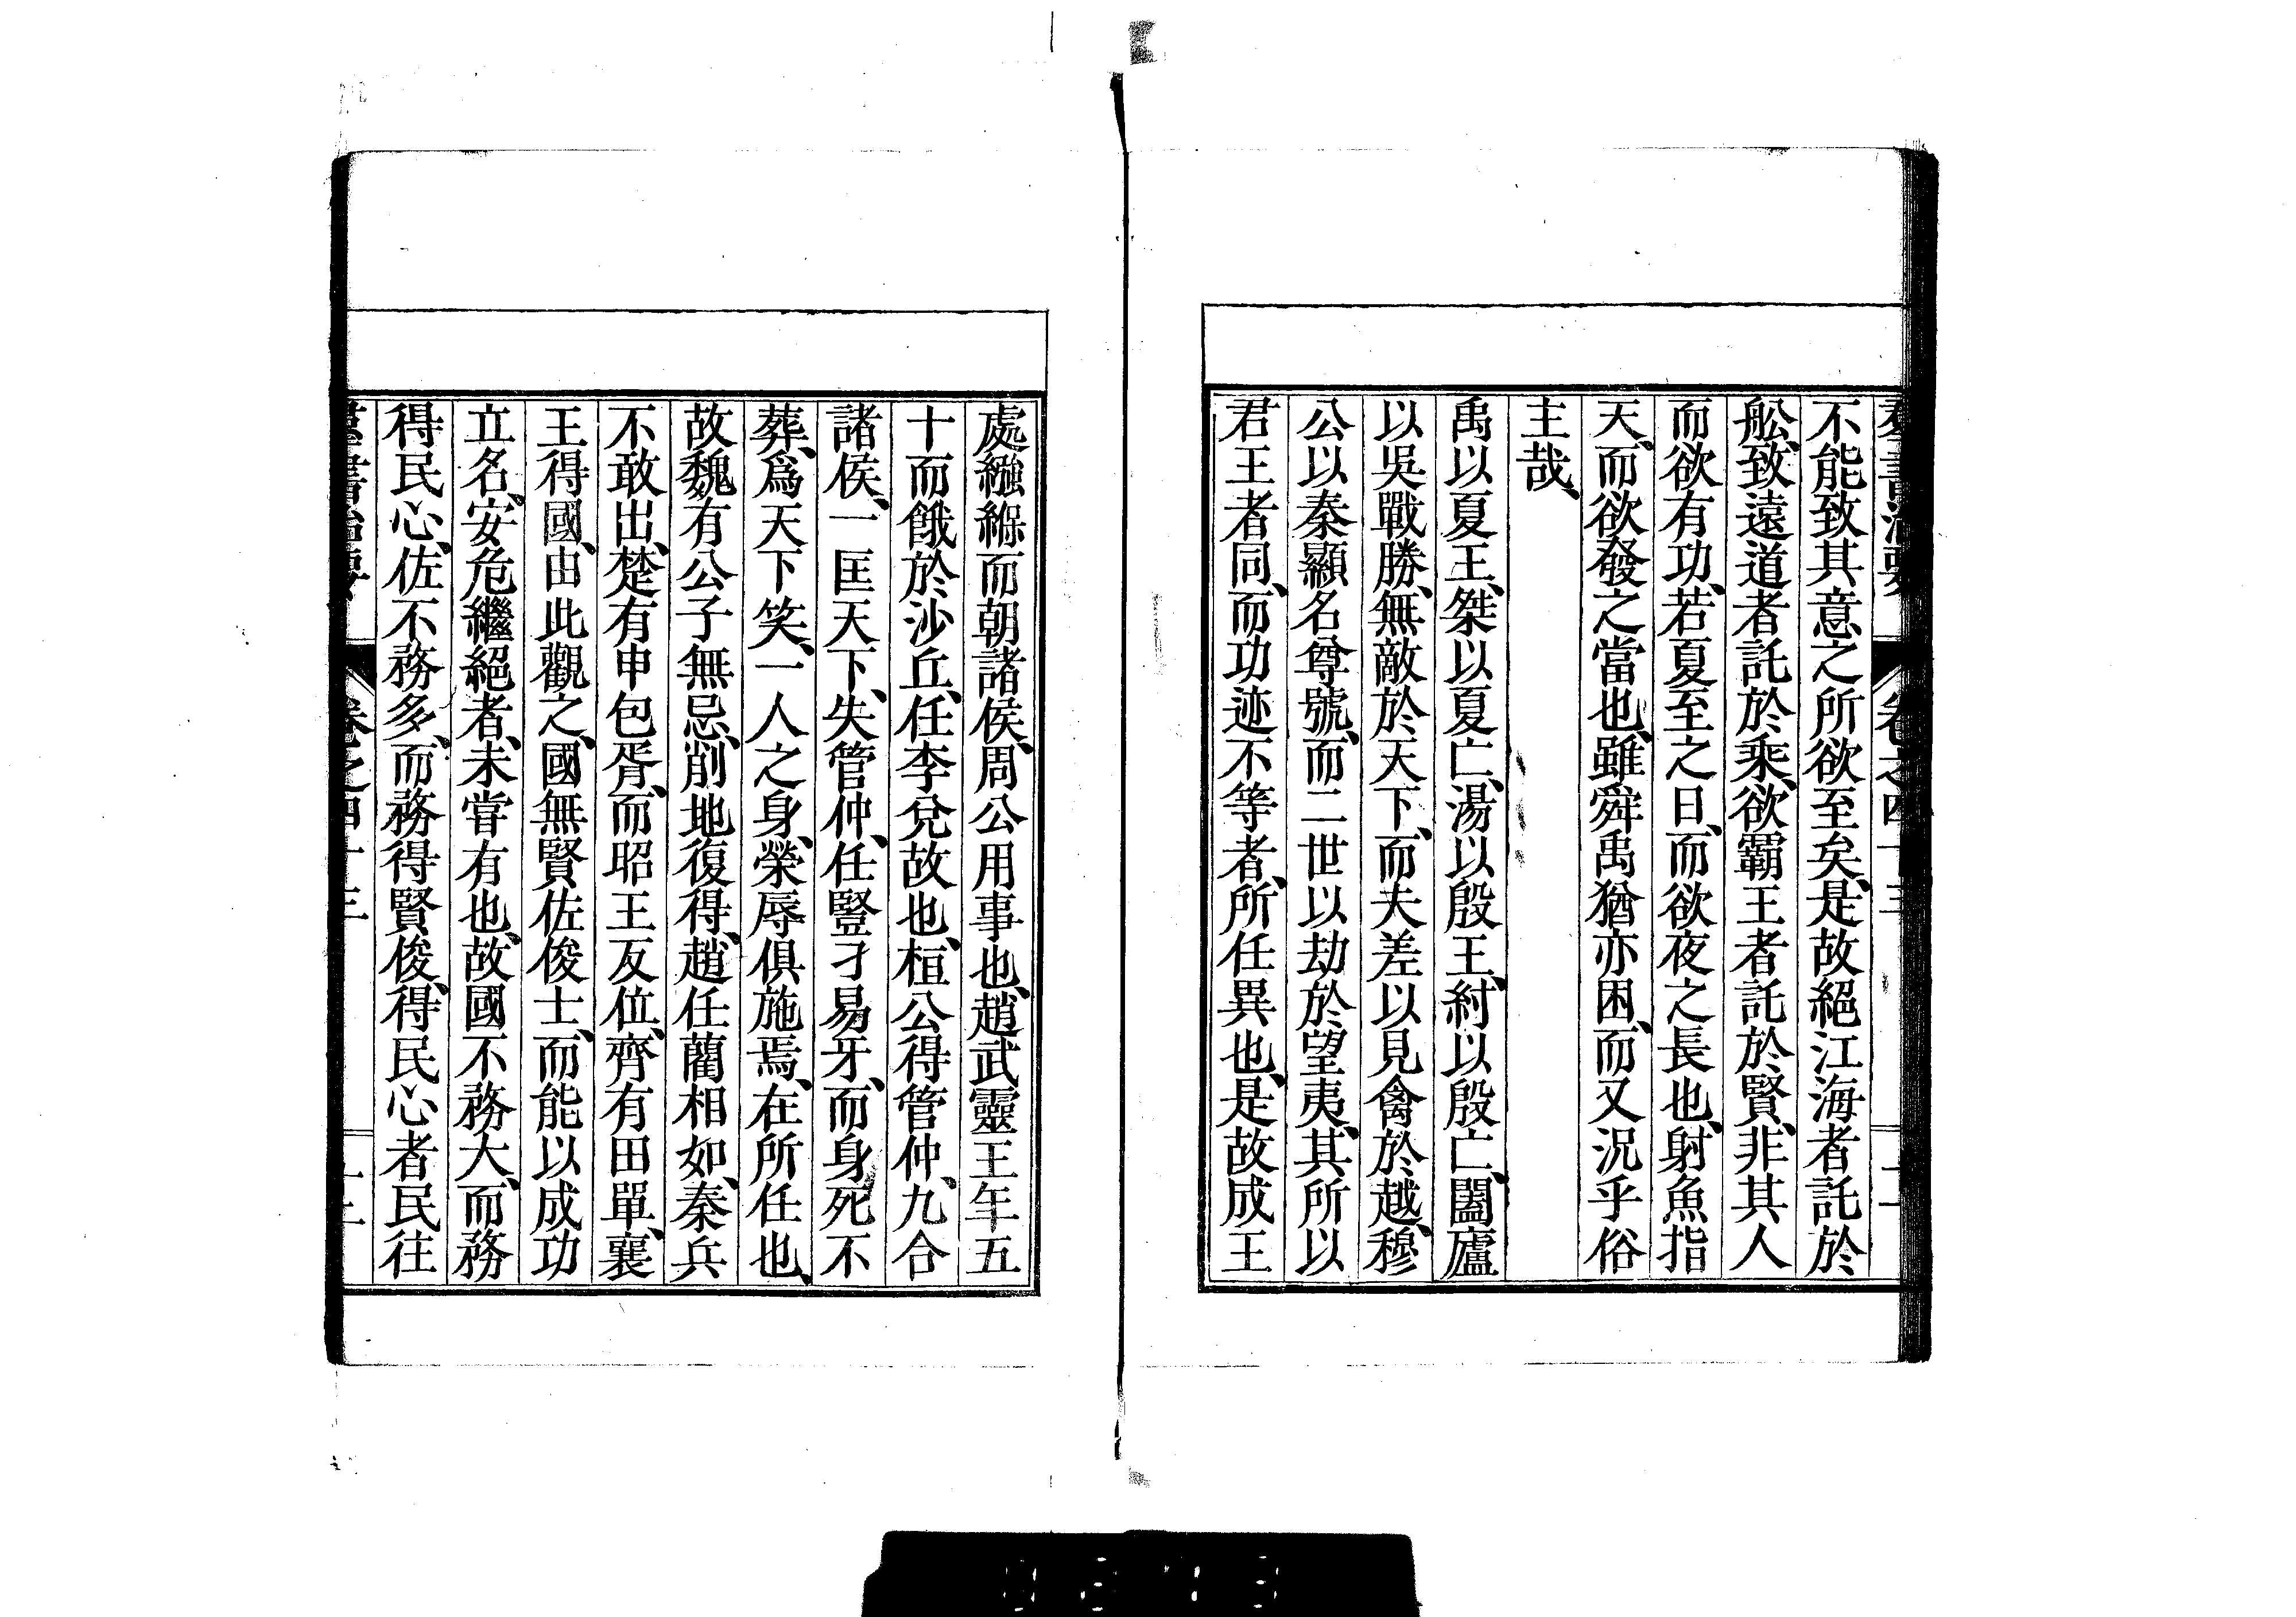 羣書治要 卷之四十三
不能致其意之所欲至矣、是故絕江海者託於
舩、致遠道者託於乘、欲霸王者託於賢、非其人
而欲有功、若夏至之日、而欲夜之長也、射魚指
天、而欲發之當也、雖舜禹猶亦困、而又況乎俗
主哉、
禹以夏王、桀以夏亡、湯以殷王、紂以殷亡、闔廬
以吳戰勝、無敵於天下、而夫差以見禽於越、穆
公以秦顯名尊號、而二世以劫於望夷、其所以
君王者同、而功迹不等者、所任異也、是故成王
處繈緥而朝諸侯、周公用事也、趙武靈王年五
十而餓於沙丘、任李兌故也、桓公得管仲、九合
諸侯、一匡天下、失管仲、任豎刁易牙、而身死不
葬、爲天下笑、一人之身、榮辱俱施焉、在所任也、
故魏有公子無忌、削地復得、趙任藺相如、秦兵
不敢出、楚有申包胥、而昭王反位、齊有田單、襄
王得國、由此觀之、國無賢佐俊士、而能以成功
立名、安危繼絕者、未嘗有也、故國不務大、而務
得民心、佐不務多、而務得賢俊、得民心者民往
羣書治要 卷之四十三